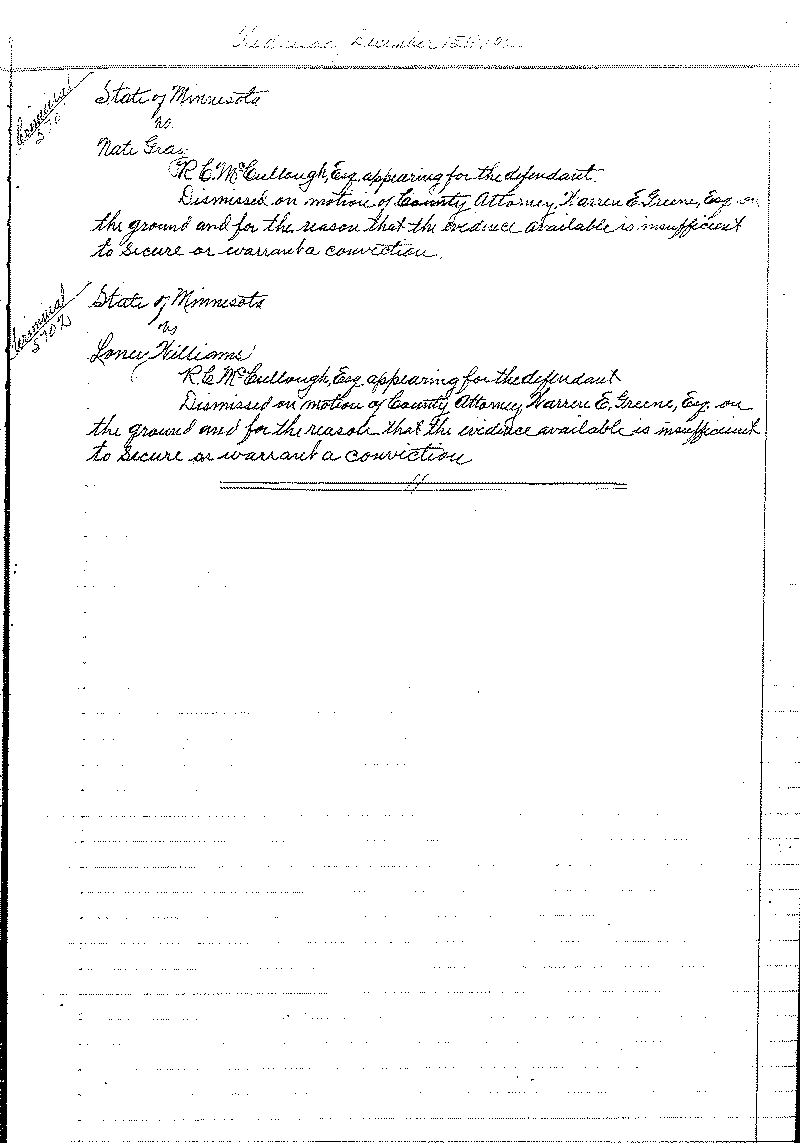 Wednesday, December 15th, 19
Criminal
570
State of Minnesota
vs.
Nate Gray
R. C. McCullough, Esq. appearing for the defendant.
Dismissed on motion of County Attorney, Warren E. Greene, Esq. on
the ground and for the reason that the evidence available is insufficient
to secure or warrant a conviction.
Criminal
5702
State of Minnesota
vs
Loney Williams
R. C. McCullough, Esq. appearing for the defendant
Dismissed on motion of County Attorney Warren E. Greene, Esq. on
the ground and for the reason that the evidence available is insufficient
to secure or warrant a conviction